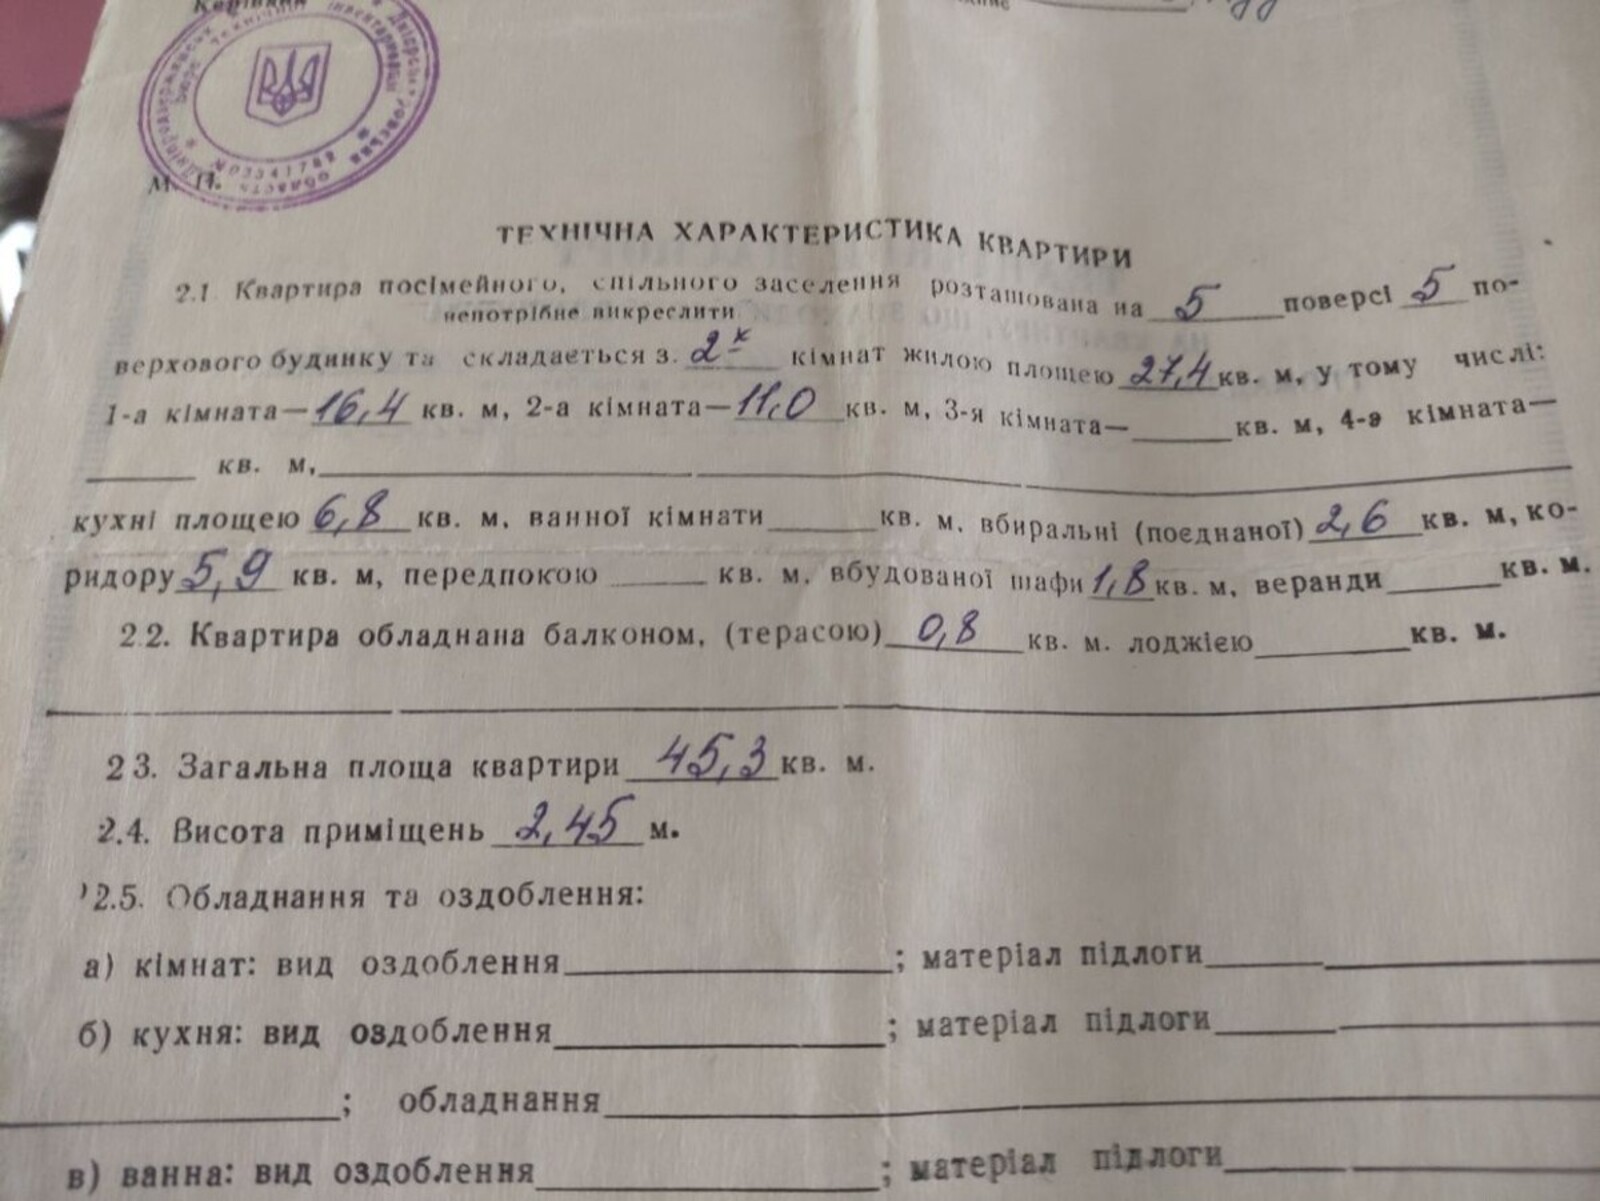 Керівник
М. П.
ТЕХНІЧНА ХАРАКТЕРИСТИКА КВАРТИРИ
2.1 Квартира посімейного, спільного заселення розташована на 5 поверсі 5 по-
непотрібне викреслити
верхового будинку та складається з. 2х кімнат жилою площею 27,4 кв. м, у тому числі:
1-а кімната—16,4 кв. м, 2-а кімната—11,0 кв. м, 3-я кімната—____кв. м, 4-а кімната—
____ кв. м,____
кухні площею 6,8 кв. м, ванної кімнати____кв. м, вбиральні (поєднаної) 2,6 кв. м, ко-
ридору 5,9 кв. м, передпокою ____ кв. м, вбудованої шафи 1,8 кв. м, веранди____кв. м.
2.2. Квартира обладнана балконом, (терасою) 0,8 кв. м. лоджією____кв. м.
2 3. Загальна площа квартири 45,3 кв. м.
2.4. Висота приміщень 2,45 м.
2.5. Обладнання та оздоблення:
а) кімнат: вид оздоблення____; матеріал підлоги____
б) кухня: вид оздоблення____; матеріал підлоги____
____; обладнання____
в) ванна: вид оздоблення____; матеріал підлоги____